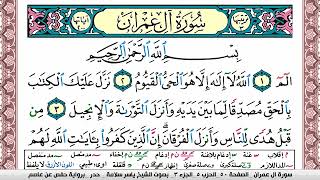 سُورَةُ آلِ عِمْرَانَ
بِسْمِ ٱللَّهِ ٱلرَّحْمَٰنِ ٱلرَّحِيمِ
الٓمٓ ١ ٱللَّهُ لَآ إِلَٰهَ إِلَّا هُوَ ٱلْحَىُّ ٱلْقَيُّومُ ٢ نَزَّلَ عَلَيْكَ ٱلْكِتَٰبَ
بِٱلْحَقِّ مُصَدِّقًا لِّمَا بَيْنَ يَدَيْهِ وَأَنزَلَ ٱلتَّوْرَىٰةَ وَٱلْإِنجِيلَ ٣ مِن
قَبْلُ هُدًى لِّلنَّاسِ وَأَنزَلَ ٱلْفُرْقَانَ إِنَّ ٱلَّذِينَ كَفَرُوا۟ بِـَٔايَٰتِ ٱللَّهِ لَهُمْ
سورة آل عمران الصفحة ٥٠ الجزء ٣ بصوت الشيخ ياسر سلامة حدر برواية حفص عن عاصم